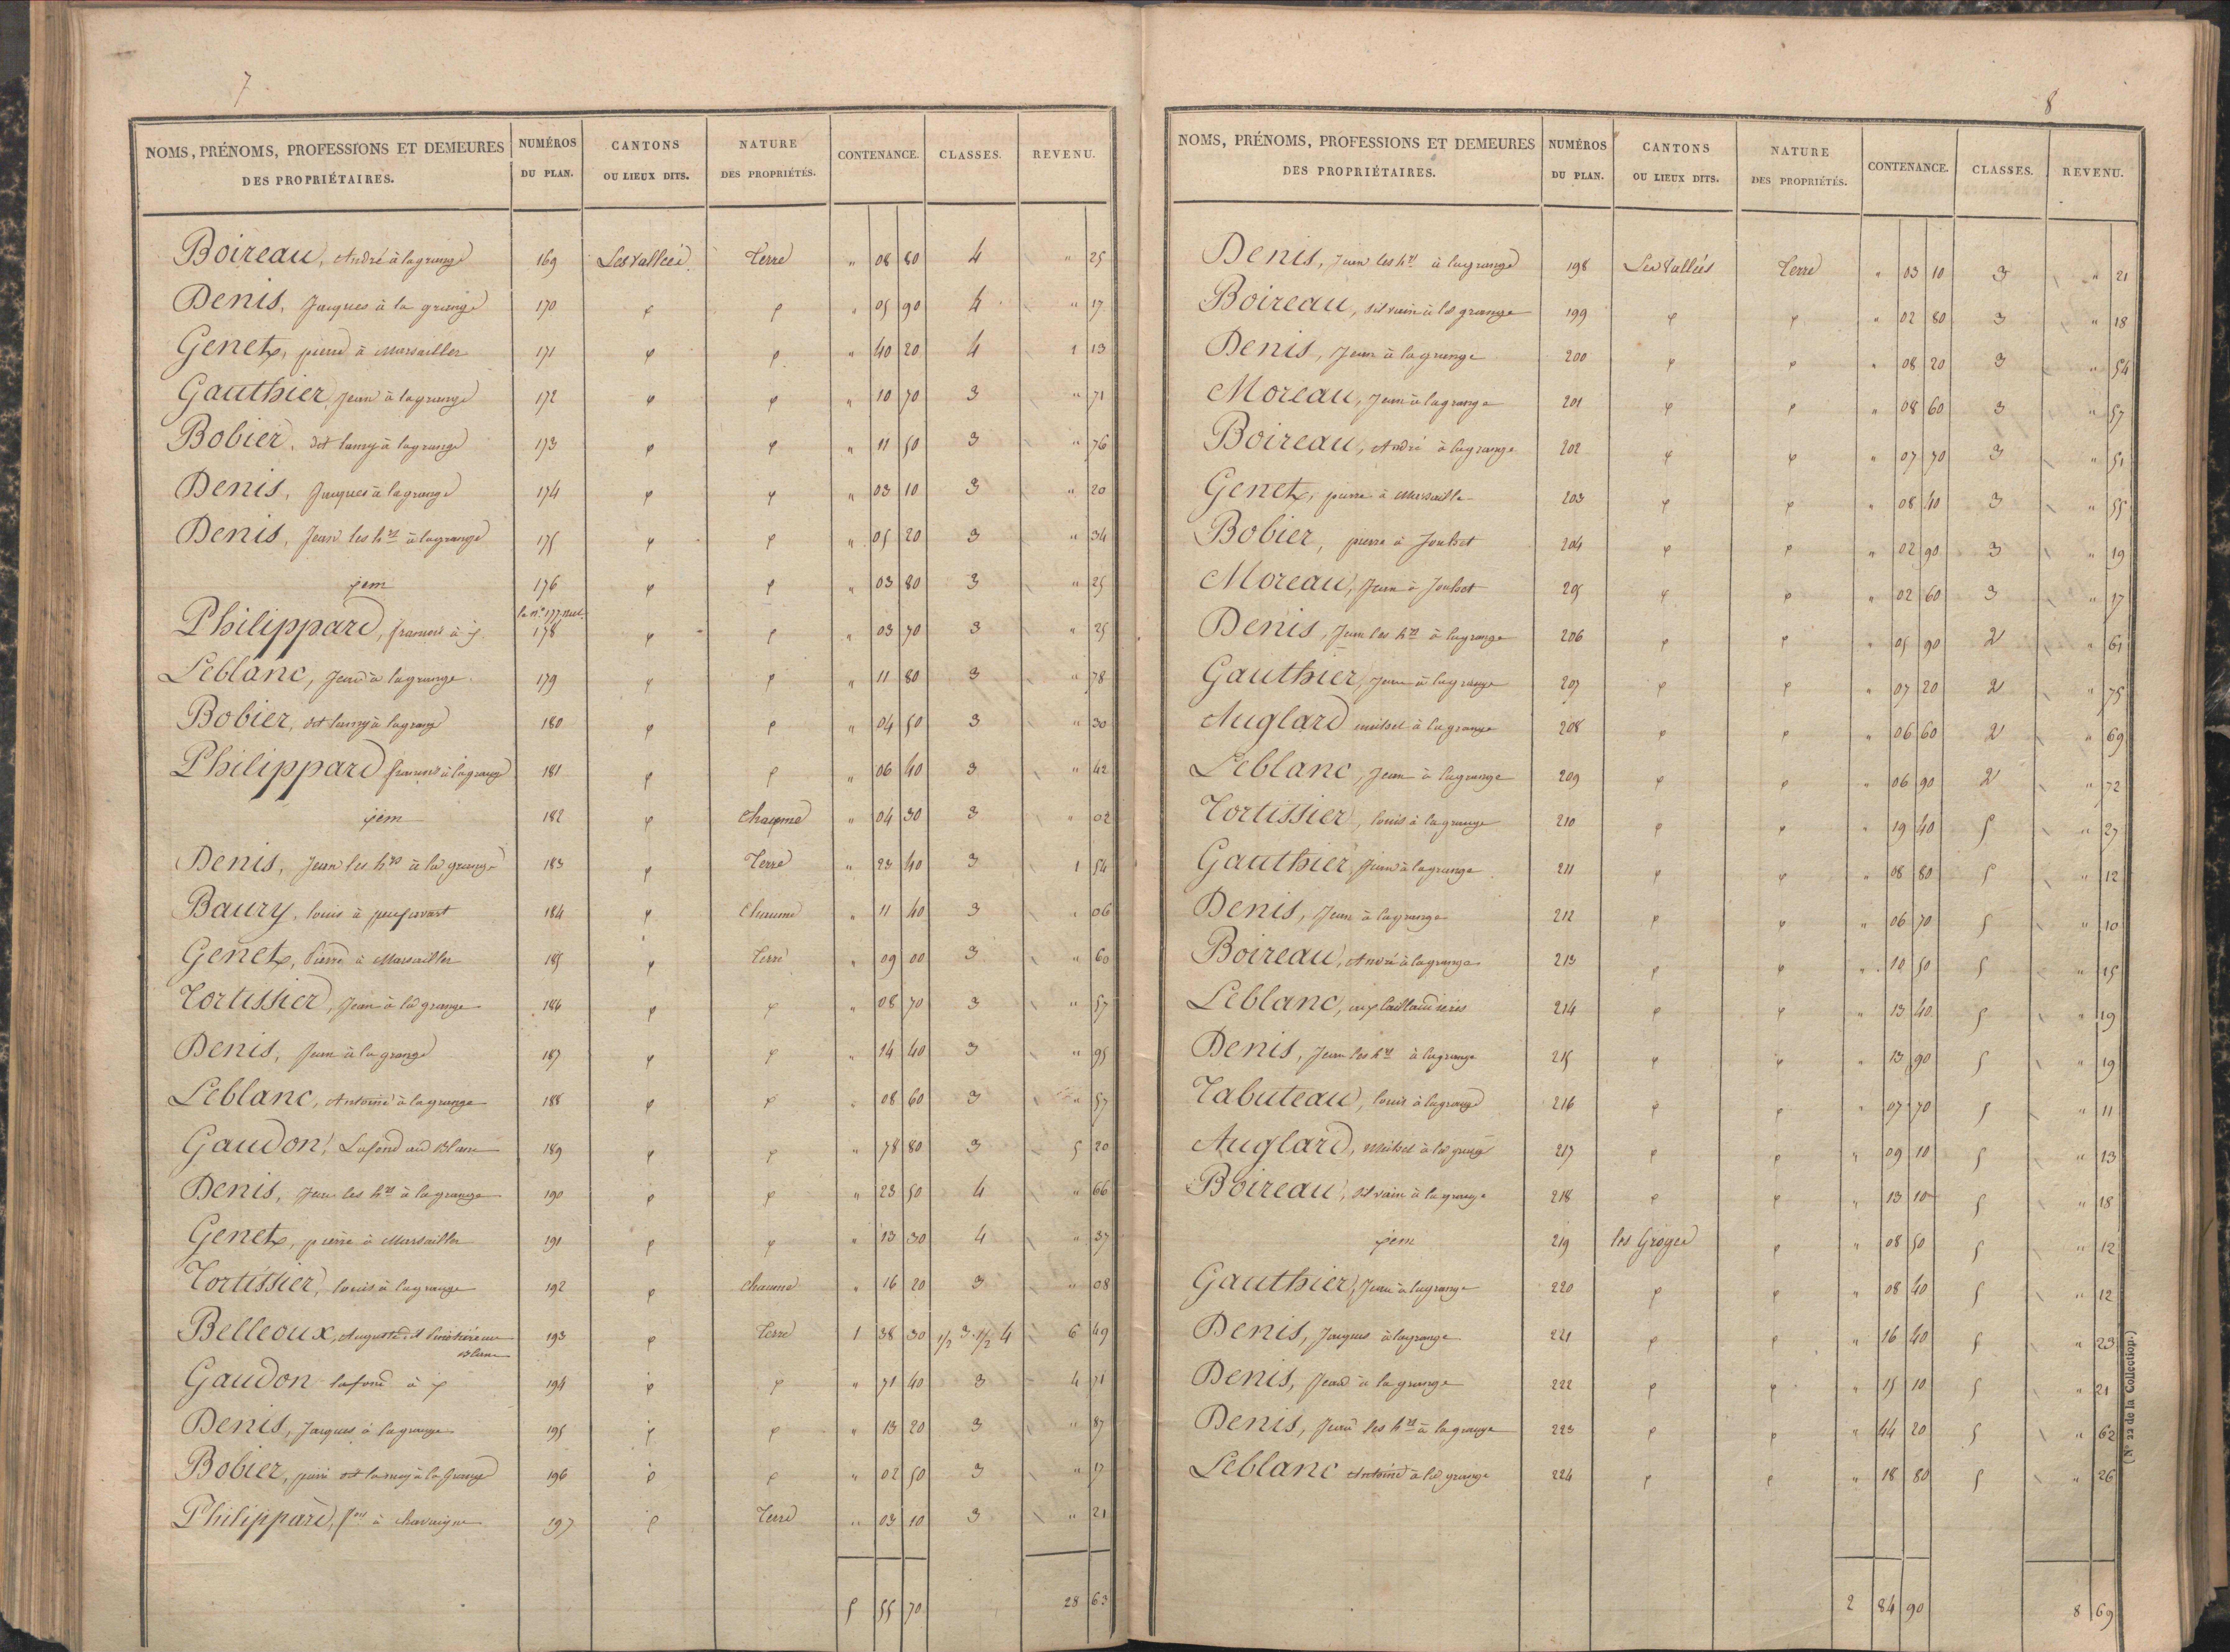 7
NOMS, PRÉNOMS, PROFESSIONS ET DEMEURES DES PROPRIÉTAIRES. NUMÉROS DU PLAN. CANTONS OU LIEUX DITS. NATURE DES PROPRIÉTÉS. CONTENANCE. CLASSES. REVENU.
Boireau, André à lagrange 169 Les vallées Terre " 08 80 4 " 25
Denis, Jacques à la grange 170 φ φ " 05 90 4 " 17
Genet, pierre à Marsailles 171 φ φ " 40 20 4 1 13
Gauthier, Jean à lagrange 172 φ φ " 10 70 3 " 71
Bobier, dit lamy à lagrange 173 φ φ " 11 50 3 " 76
Denis, Jacques à lagrange 174 φ φ " 03 10 3 " 20
Denis, Jean les hrs à lagrange 175 φ φ " 05 20 3 " 34
φem 176 φ φ " 03 80 3 " 25
le n° 177 nul
Philippard, francois à φ 178 φ φ " 03 70 3 " 25
Leblanc, Jean à lagrange 179 φ φ " 11 80 3 " 78
Bobier, dit lamy à lagrange 180 φ φ " 04 50 3 " 30
Philippard francois à lagrange 181 φ φ " 06 40 3 " 42
φem 182 φ chaume " 04 30 3 " 02
Denis, Jean les hrs à la grange 183 φ Terre " 23 40 3 1 54
Baury, louis à 184 φ Chaume " 11 40 3 " 06
Genet, Pierre à Marsailles 185 φ Terre " 09 00 3 " 60
Tortissier, Jean à la grange 186 φ φ " 08 70 3 " 57
Denis, Jean à la grange 187 φ φ " 14 40 3 " 95
Leblanc, Antoine à lagrange 188 φ φ " 08 60 3 " 57
Gaudon, Lafond au Blanc 189 φ φ " 78 80 3 5 20
Denis, Jean les hrs à lagrange 190 φ φ " 23 50 4 " 66
Genet, pierre à Marsailles 191 φ φ " 13 30 4 " 37
Tortissier, louis à lagrange 192 φ chaume " 16 20 3 " 08
Belleoux, Auguste au Blanc 193 φ Terre 1 38 30 1/2 3. 1/2 4 6 49
Gaudon lafond à φ 194 φ φ " 71 40 3 4 71
Denis, Jacques à lagrange 195 φ φ " 13 20 3 " 87
Bobier, pierre dit lamy à la Grange 196 φ φ " 02 50 3 " 17
Philippard, fois à chavaigne 197 φ Terre " 03 10 3 " 21
5 55 70 28 63
8
NOMS, PRÉNOMS, PROFESSIONS ET DEMEURES DES PROPRIÉTAIRES. NUMÉROS DU PLAN. CANTONS OU LIEUX DITS. NATURE DES PROPRIÉTÉS. CONTENANCE. CLASSES. REVENU.
Denis, Jean les hrs à lagrange 198 Les Vallées Terre " 03 10 3 " 21
Boireau, silvain à la grange 199 φ φ " 02 80 3 " 18
Denis, Jean à lagrange 200 φ φ " 08 20 3 " 54
Moreau, Jean à lagrange 201 φ φ " 08 60 3 " 57
Boireau, André à lagrange 202 φ φ " 07 70 3 " 51
Genet, pierre à Marsailles 203 φ φ " 08 40 3 " 55
Bobier, pierre à Jouhet 204 φ φ " 02 90 3 " 19
Moreau, Jean à Jouhet 205 φ φ " 02 60 3 " 17
Denis, Jean les hrs à lagrange 206 φ φ " 05 90 2 " 61
Gauthier, Jean à lagrange 207 φ φ " 07 20 2 " 75
Auglard michel à lagrange 208 φ φ " 06 60 2 " 69
Leblanc, Jean à lagrange 209 φ φ " 06 90 2 " 72
Tortissier, louis à lagrange 210 φ φ " 19 40 5 " 27
Gauthier, Jean à lagrange 211 φ φ " 08 80 5 " 12
Denis, Jean à lagrange 212 φ φ " 06 70 5 " 10
Boireau, André à lagrange 213 φ φ " 10 50 5 " 15
Leblanc, aux taillauderies 214 φ φ " 13 40 5 " 19
Denis, Jean les hrs à lagrange 215 φ φ " 13 90 5 " 19
Tabuteau, louis à lagrange 216 φ φ " 07 70 5 " 11
Auglard, Michel à la grange 217 φ φ " 09 10 5 " 13
Boireau, silvain à lagrange 218 φ φ " 13 10 5 " 18
φem 219 les Groges φ " 08 50 5 " 12
Gauthier, Jean à lagrange 220 φ φ " 08 40 5 " 12
Denis, Jacques à lagrange 221 φ φ " 16 40 5 " 23
Denis, Jean à la grange 222 φ φ " 15 10 5 " 21
Denis, Jean les hrs à lagrange 223 φ φ " 44 20 5 " 62
Leblanc Antoine à la grange 224 φ φ " 18 80 5 " 26
2 84 90 8 69
(N° 22 de la Collection.)